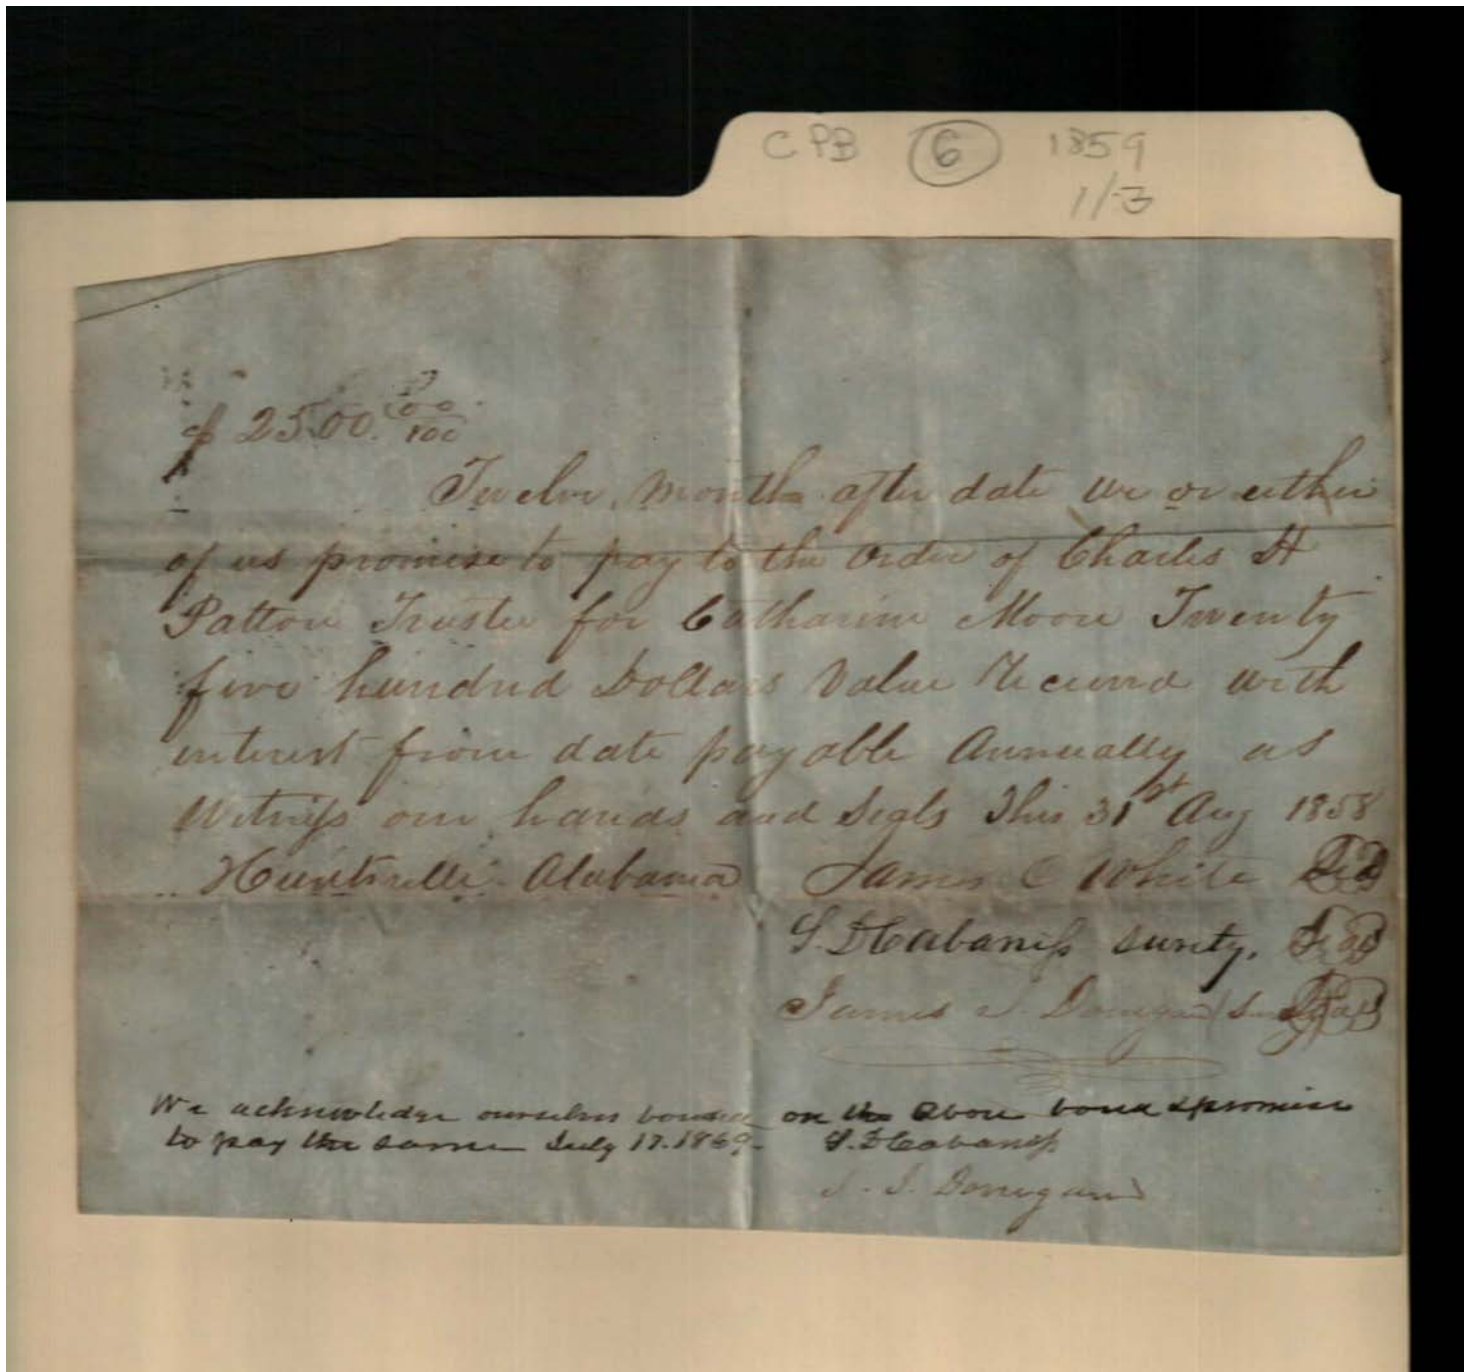 CPB 6 1859
1/3
$2500. 00/100
Twelve month after date we or either
of us promise to pay to the order of Charles H
Patton Trustee for Catharine Moore Twenty
five hundred Dollars Value Received with
interest from date payable Annually as
Witness our hands and Seals This 31st Aug 1858
Huntsville Alabama James C White Seal
S. D Cabaniss surety. Seal
James J. Donegan Seal
We acknowledge ourselves bound on the above bond & promise
to pay the same July 17. 1869. S. D Cabaniss
J. J. Donegan